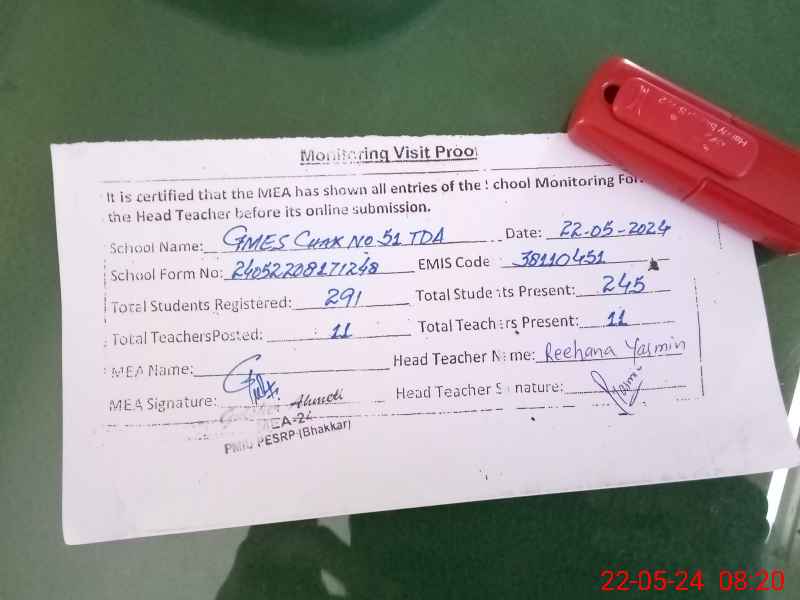 Monitoring Visit Proof
It is certified that the MEA has shown all entries of the School Monitoring For
the Head Teacher before its online submission.
School Name: GMES CHAK NO 51 TDA Date: 22-05-2024
School Form No: 24052208171248 EMIS Code 38110451
Total Students Registered: 291 Total Students Present: 245
Total TeachersPosted: 11 Total Teachers Present: 11
MEA Name: Head Teacher Name: Reehana Yasmin
MEA Signature: Head Teacher Signature:
Ahmed
MEA-24
PMIU PESRP (Bhakkar)
22-05-24 08:20